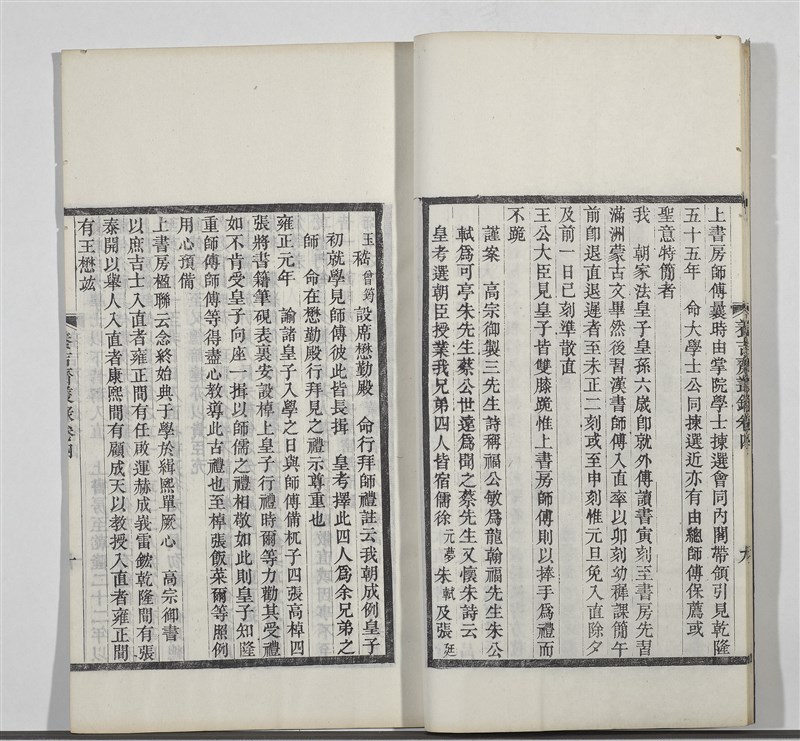 上書房師傅曩時由掌院學士揀選會同內閣帶領引見乾隆
五十五年　命大學士公同揀選近亦有由總師傅保薦或
聖意特簡者
我　朝家法皇子皇孫六歲卽就外傅讀書寅刻至書房先習
滿洲蒙古文畢然後習漢書師傅入直率以卯刻幼稺課簡午
前卽退直退遲者至未正二刻或至申刻惟元旦免入直除夕
及前一日巳刻準散直
王公大臣見皇子皆雙膝跪惟上書房師傅則以捧手爲禮而
不跪
謹案　高宗御製三先生詩稱福公敏爲龍翰福先生朱公
軾爲可亭朱先生蔡公世遠爲聞之蔡先生又懷朱詩云
皇考選朝臣授業我兄弟四人皆宿儒徐元夢朱軾及張廷
養吉齋叢錄卷四
九
玉嵇曾筠設席懋勤殿　命行拜師禮註云我朝成例皇子
初就學見師傅彼此皆長揖　皇考擇此四人爲余兄弟之
師　命在懋勤殿行拜見之禮示尊重也
雍正元年　諭諸皇子入學之日與師傅備杌子四張高棹四
張將書籍筆硯表裏安設棹上皇子行禮時爾等力勸其受禮
如不肯受皇子向座一揖以師儒之禮相敬如此則皇子知隆
重師傅師傅等得盡心敎導此古禮也至棹張飯菜爾等照例
用心預備
上書房楹聯云念終始典于學於緝熙單厥心　高宗御書
以庶吉士入直者雍正間有任啟運赫成峩雷鋐乾隆間有張
泰開以舉人入直者康熙間有顧成天以敎授入直者雍正間
有王懋竑
養吉齋叢錄卷四
十